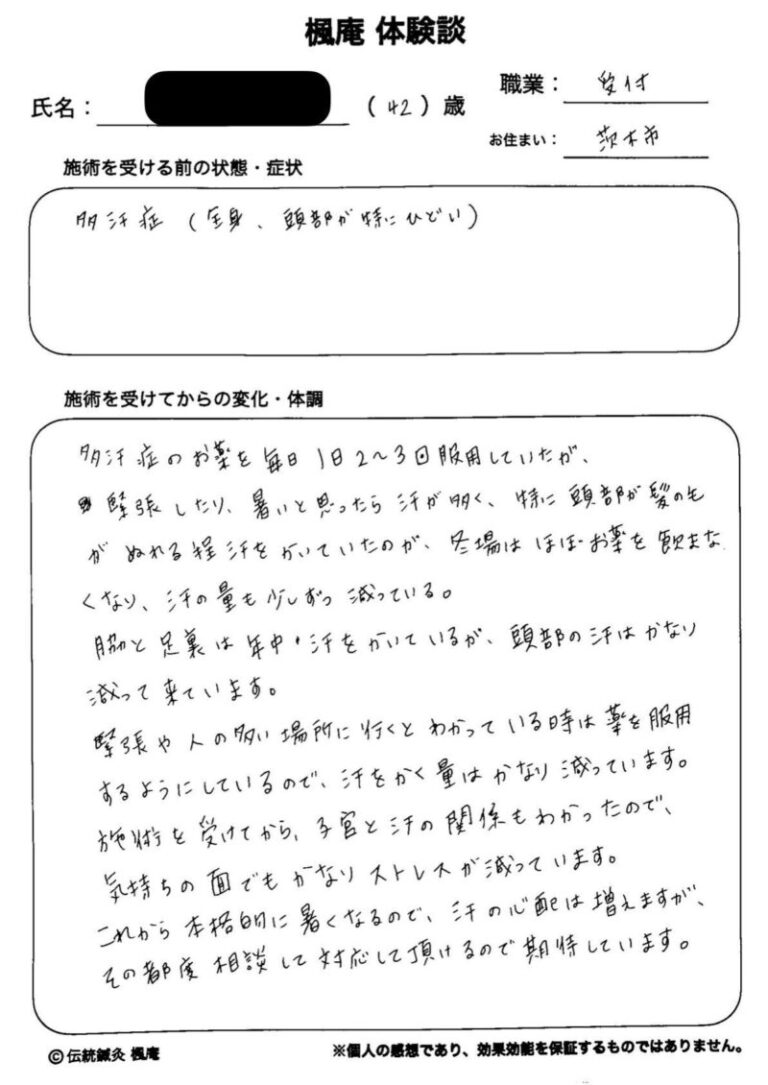 楓庵 体験談
氏名：
（ 42 ）歳
職業： 受付
お住まい： 茨木市
施術を受ける前の状態・症状
多汗症（全身、頭部が特にひどい）
施術を受けてからの変化・体調
多汗症のお薬を毎日1日2〜3回服用していたが、
緊張したり、暑いと思ったら汗が多く、特に頭部が髪の毛
がぬれる程汗をかいていたのが、冬場はほぼお薬を飲まな
くなり、汗の量も少しずつ減っている。
脇と足裏は年中汗をかいているが、頭部の汗はかなり
減って来ています。
緊張や人の多い場所に行くとわかっている時は薬を服用
するようにしているので、汗をかく量はかなり減っています。
施術を受けてから、子宮と汗の関係もわかったので、
気持ちの面でもかなりストレスが減っています。
これから本格的に暑くなるので、汗の心配は増えますが、
その都度相談して対応して頂けるので期待しています。
©伝統鍼灸 楓庵
※個人の感想であり、効果効能を保証するものではありません。